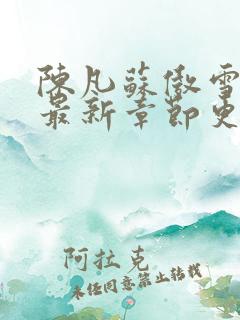 陳凡蘇傲雪
最新章節史
阿拉克
未经同意禁止转载